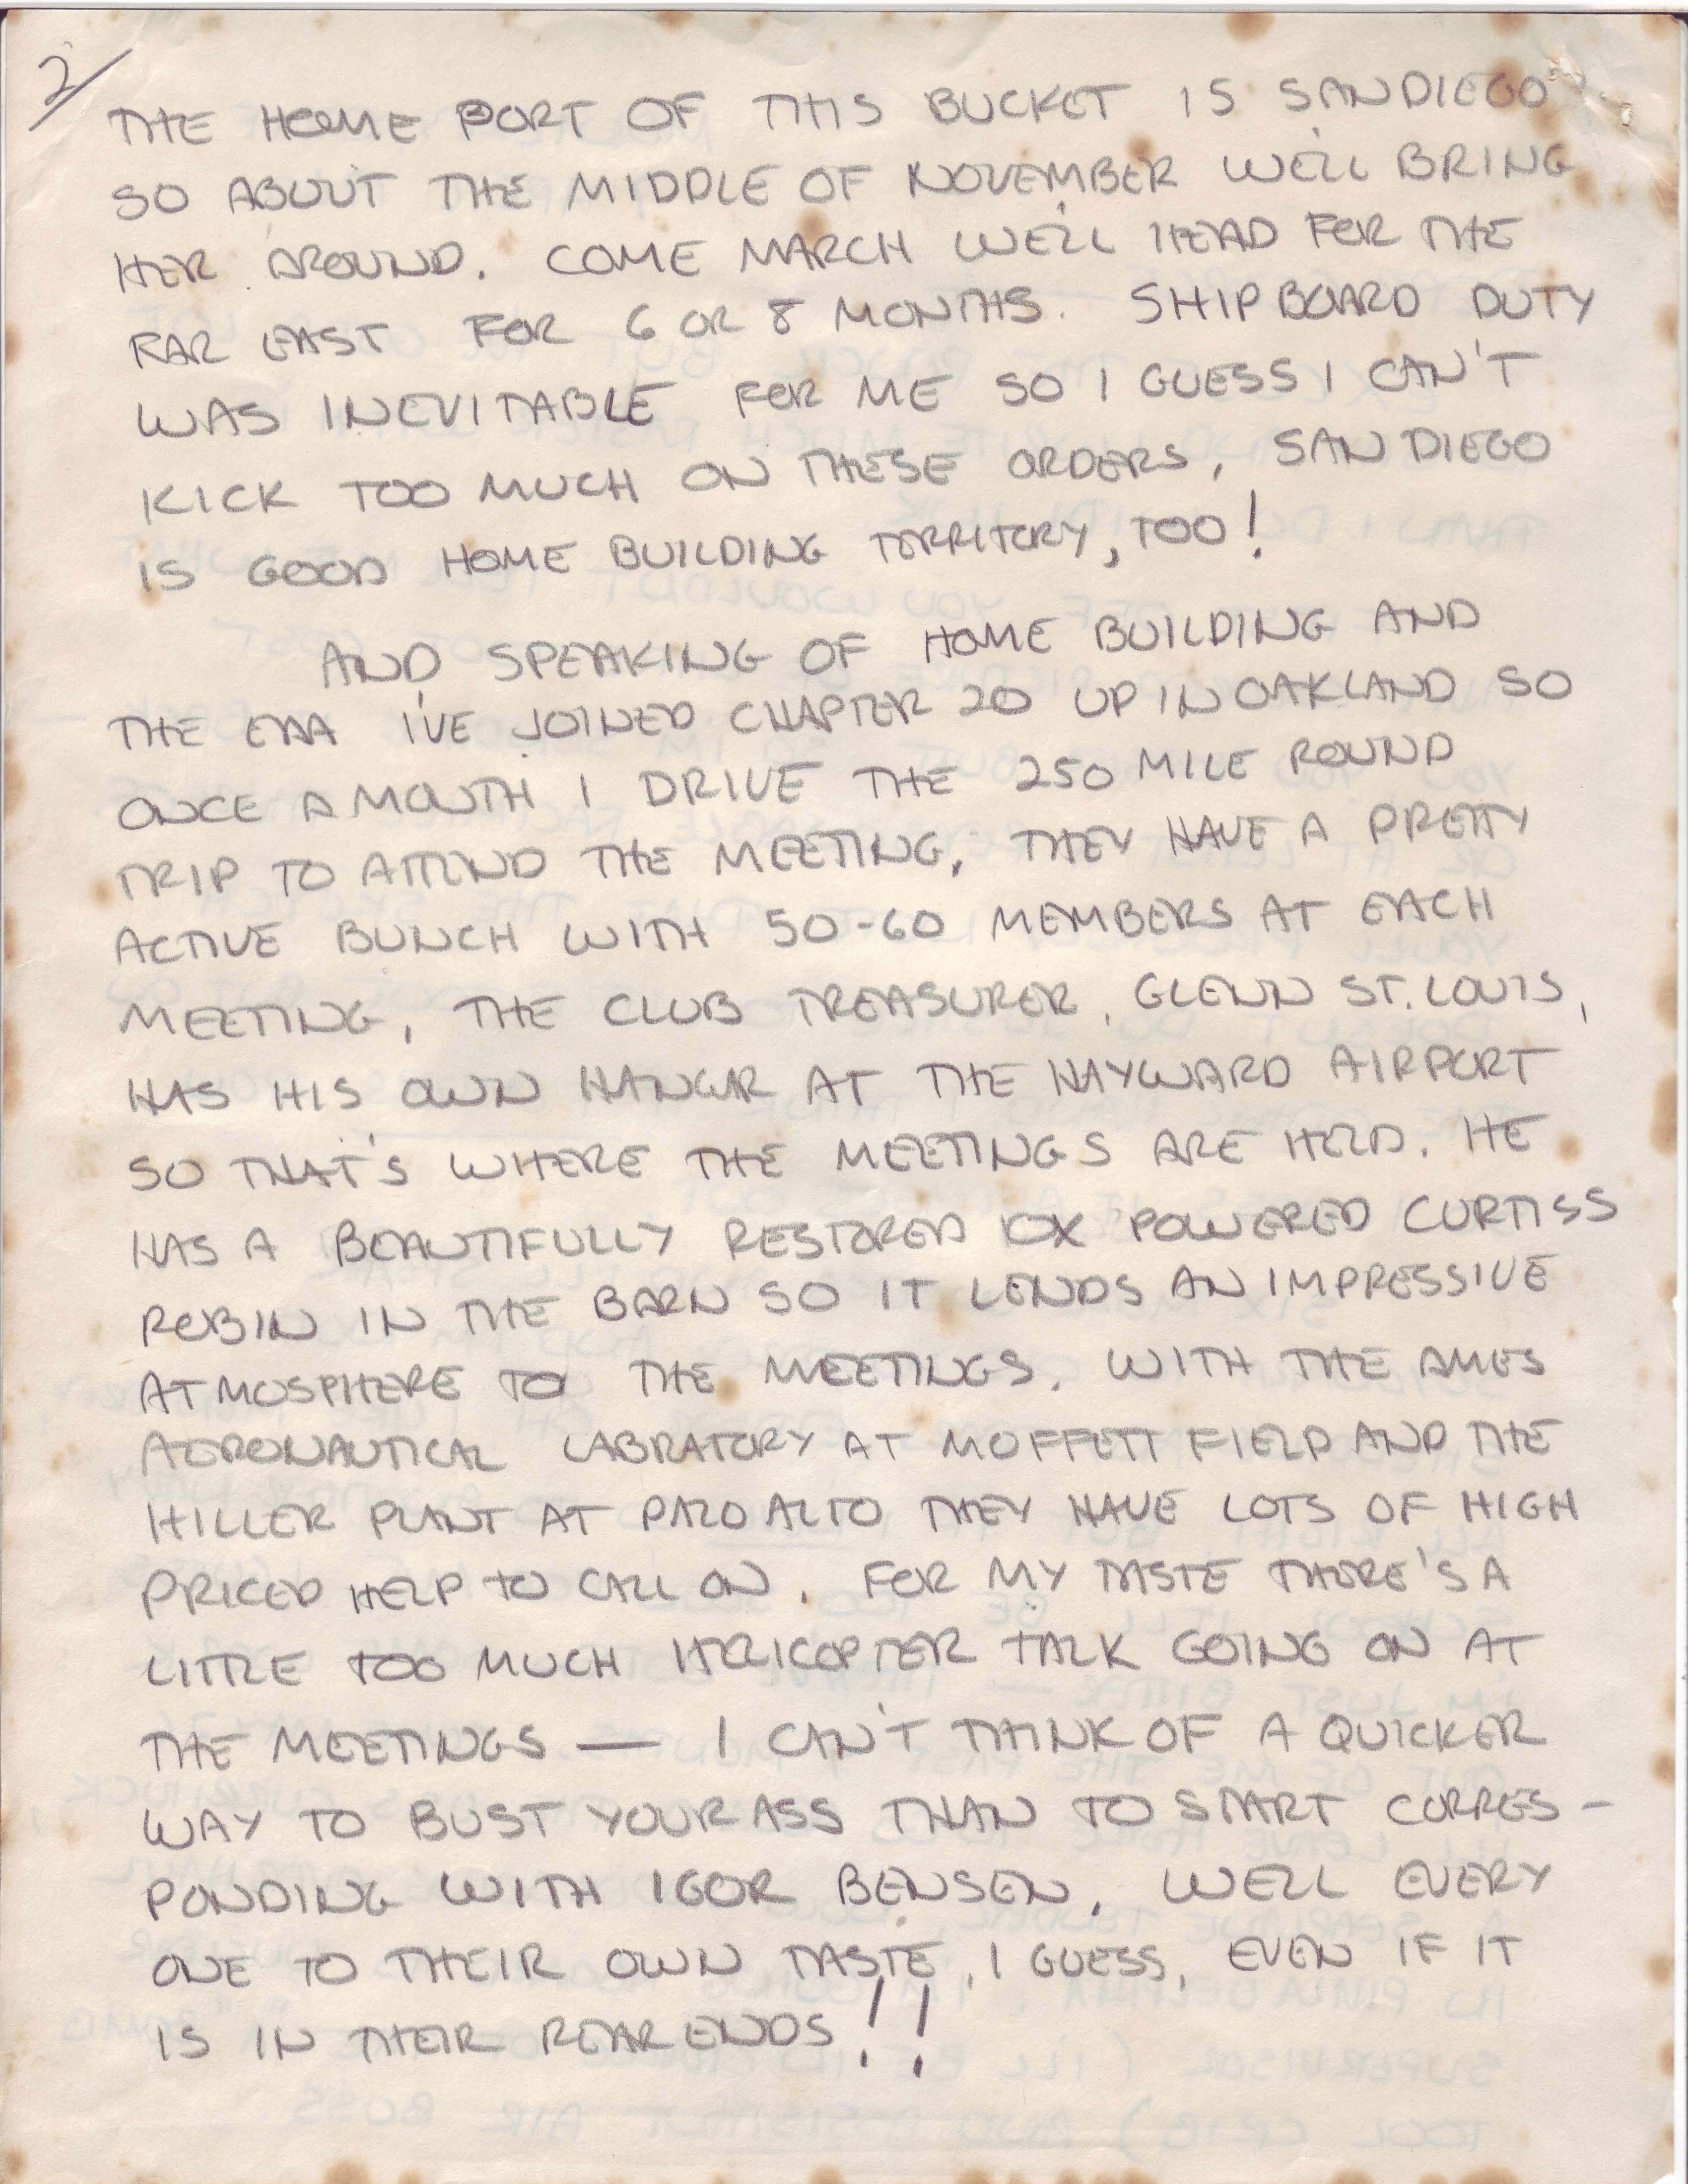 2/
THE HOME PORT OF THIS BUCKET IS SAN DIEGO
SO ABOUT THE MIDDLE OF NOVEMBER WE'LL BRING
HER AROUND. COME MARCH WE'LL HEAD FOR THE
FAR EAST FOR 6 OR 8 MONTHS. SHIPBOARD DUTY
WAS INEVITABLE FOR ME SO I GUESS I CAN'T
KICK TOO MUCH ON THESE ORDERS, SAN DIEGO
IS GOOD HOME BUILDING TERRITORY, TOO!
AND SPEAKING OF HOME BUILDING AND
THE EAA I'VE JOINED CHAPTER 20 UP IN OAKLAND SO
ONCE A MONTH I DRIVE THE 250 MILE ROUND
TRIP TO ATTEND THE MEETING. THEY HAVE A PRETTY
ACTIVE BUNCH WITH 50-60 MEMBERS AT EACH
MEETING, THE CLUB TREASURER, GLENN ST. LOUIS,
HAS HIS OWN HANGAR AT THE HAYWARD AIRPORT
SO THAT'S WHERE THE MEETINGS ARE HELD. HE
HAS A BEAUTIFULLY RESTORED OX POWERED CURTISS
ROBIN IN THE BARN SO IT LENDS AN IMPRESSIVE
ATMOSPHERE TO THE MEETINGS. WITH THE AMES
AERONAUTICAL LABRATORY AT MOFFETT FIELD AND THE
HILLER PLANT AT PALO ALTO THEY HAVE LOTS OF HIGH
PRICED HELP TO CALL ON. FOR MY TASTE THERE'S A
LITTLE TOO MUCH HELICOPTER TALK GOING ON AT
THE MEETINGS — I CAN'T THINK OF A QUICKER
WAY TO BUST YOUR ASS THAN TO START CORRES-
PONDING WITH IGOR BENSEN. WELL EVERY
ONE TO THEIR OWN TASTE, I GUESS, EVEN IF IT
IS IN THEIR REAR ENDS!!